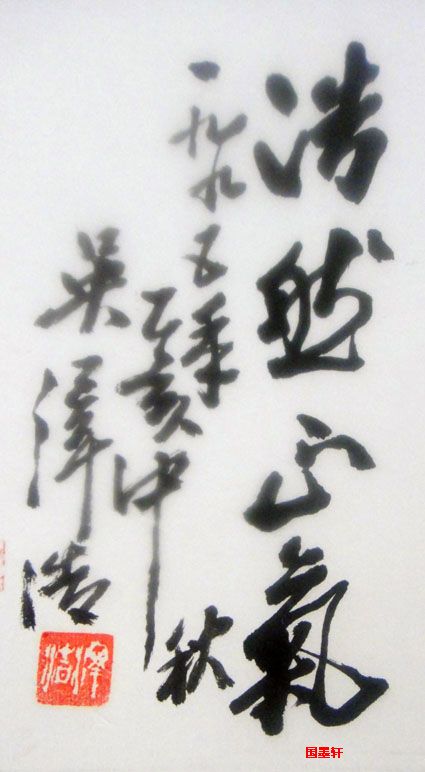 浩然正氣
一九九五年
乙亥中秋
吴澤浩
澤浩
国墨轩